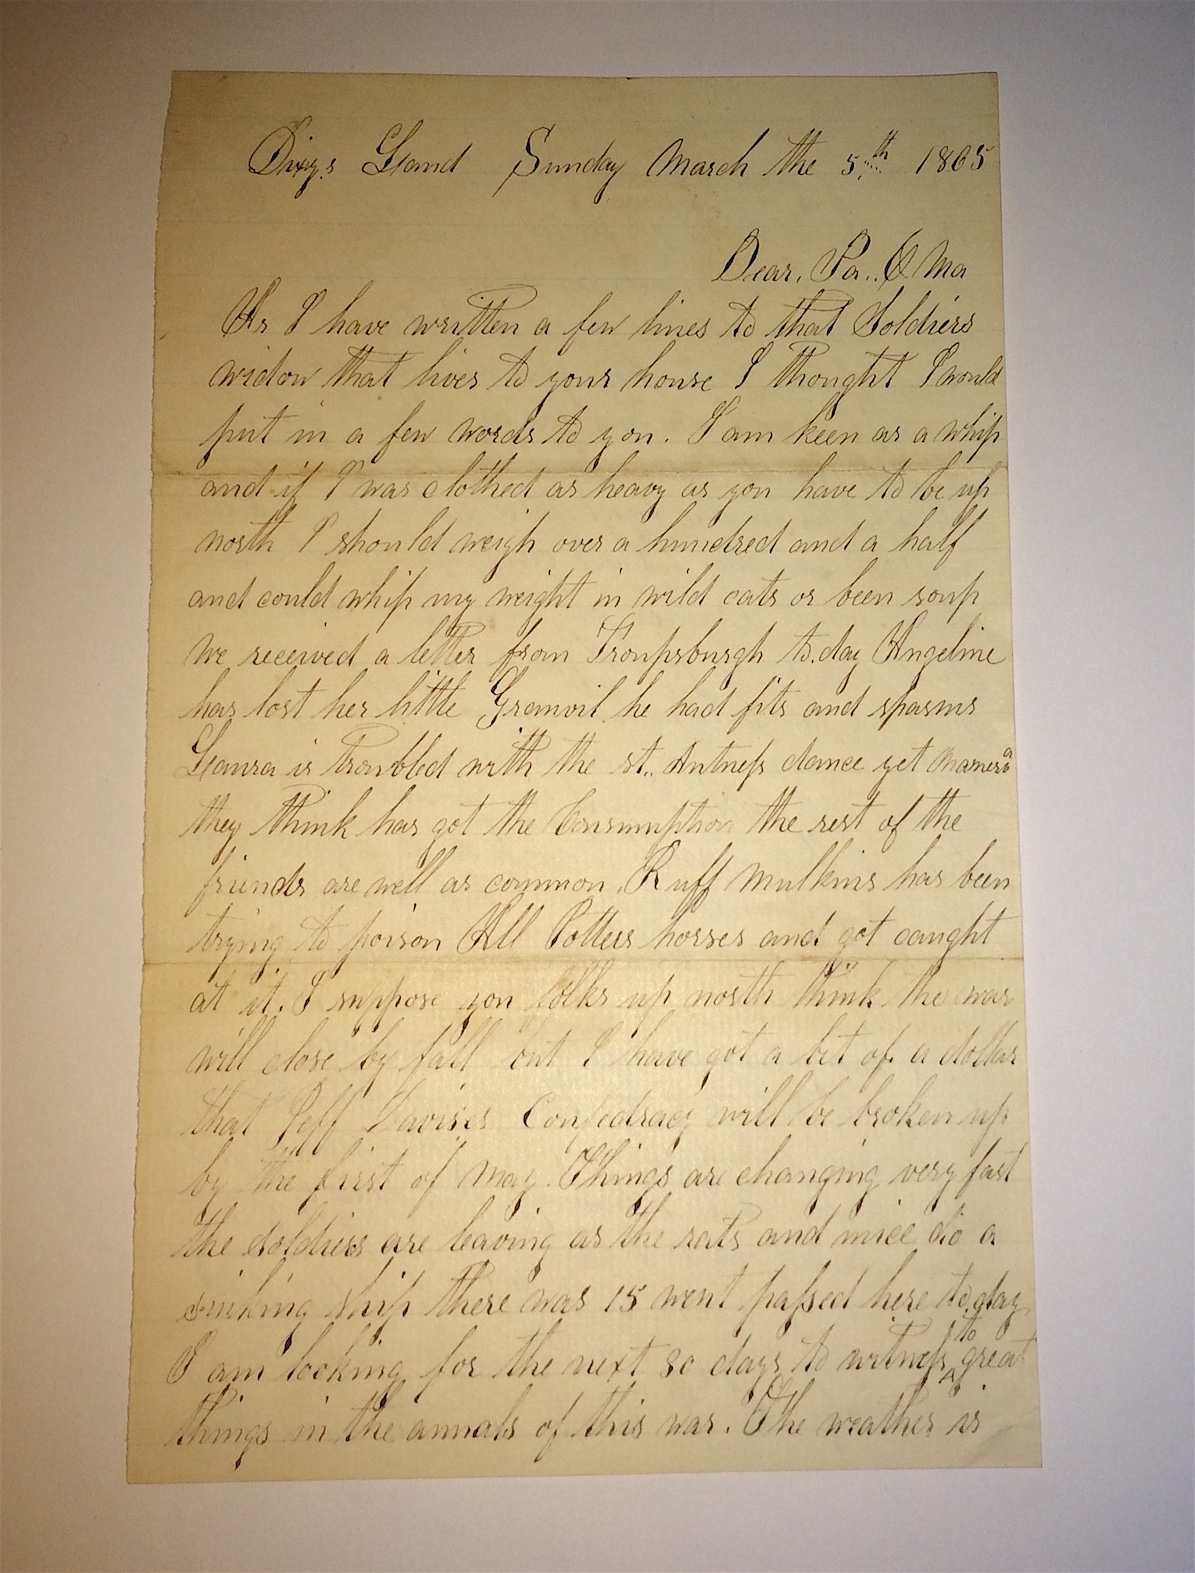 Dixys Land Sunday March the 5th 1865
Dear, Pa.. & Ma
As I have written a few lines to that Soldiers
widow that lives to your house I thought I would
put in a few words to you. I am keen as a whip
and if I was clothed as heavy as you have to be up
north I should weigh over a hundred and a half
and could whip my weight in wild cats or been soup
we received a letter from Troupsburgh to.day Angeline
has lost her little Granvil he had fits and spasms
Laura is troubled with the st.. Antness dance yet
they think has got the Consumption the rest of the
friends are well as common, Ruff Mulkins has been
trying to poison All Potters horses and got caught
at it. I suppose you folks up north think the war
will close by fall but I have got a bet of a dollar
that Jeff Davises Confedracy will be broken up
by the first of May. Things are changing very fast
the Soldiers are leaving as the rats and mice do a
sinking ship there was 15 went passed here to.day
I am looking for the next 30 days to witness to great
things in the annals of this war. The weather is